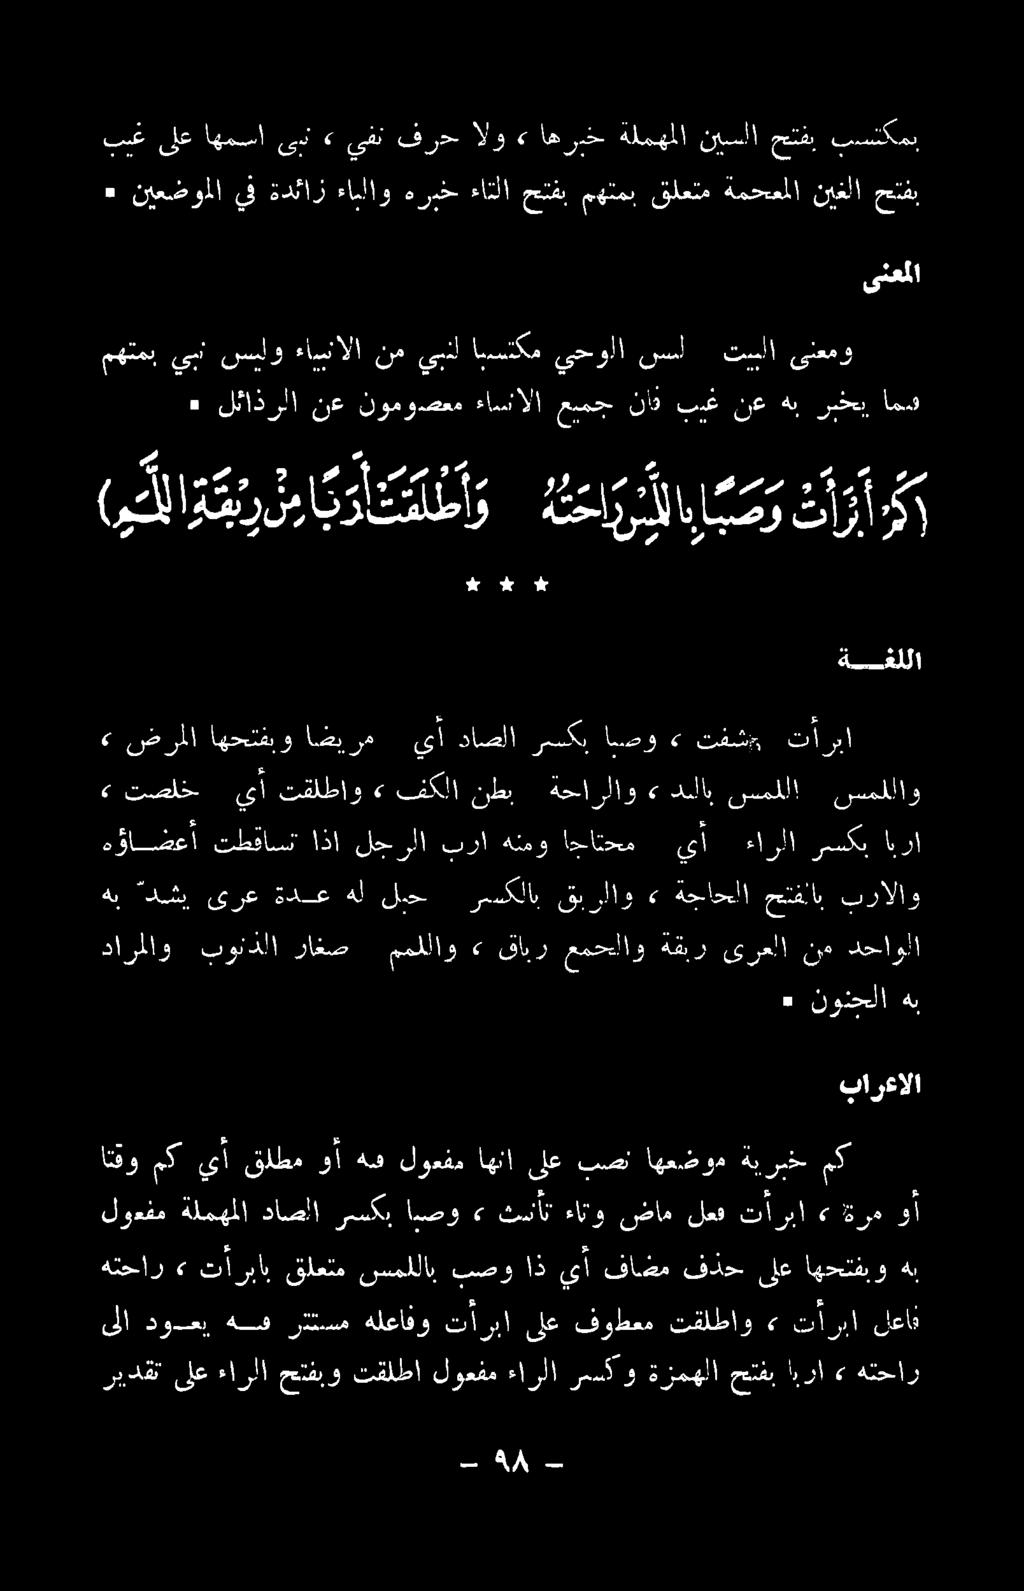 بمكتسب بفتح السين المهملة خبرها ، ولا حرف نفي ، نبى اسمها على غيب
بفتح الغين المعجمة متعلق بمتهم بفتح التاء خبره والباء زائدة في الموضعين .
المعنى
ومعنى البيت ليس الوحي مكتسبا لنبي من الانبياء وليس نبي بمتهم
فيما يخبر به عن غيب فان جميع الانبياء معصومون عن الرذائل .
(كَمْ أَبْرَأَتْ وَصِبًا بِاللَّمْسِ رَاحَتُهُ وَأَطْلَقَتْ أَرِبًا مِنْ رِبْقَةِ اللَّمَمِ)
* * *
اللغــة
ابرأت شفت ، وصبا بكسر الصاد أي مريضا وبفتحها المرض ،
واللمس اللمس باليد ، والراحة بطن الكف ، واطلقت أي خلصت ،
اربا بكسر الراء أي محتاجا ومنه ارب الرجل اذا تساقطت أعضـاؤه
والارب بالفتح الحاجة ، والربق بالكسر حبل له عـدة عرى يشدّ به
الواحد من العرى ربقة والجمع رباق ، واللمم صغار الذنوب والمراد
به الجنون .
الاعراب
كم خبرية موضعها نصب على انها مفعول فيه أو مطلق أي كم وقتا
أو مرة ، ابرأت فعل ماض وتاء تأنيث ، وصبا بكسر الصاد المهملة مفعول
به وبفتحها على حذف مضاف أي ذا وصب باللمس متعلق بابرأت ، راحته
فاعل ابرأت ، واطلقت معطوف على ابرأت وفاعله مستتر فيـه يعـود الى
راحته ، اربا بفتح الهمزة وكسر الراء مفعول اطلقت وبفتح الراء على تقدير
- ٩٨ -